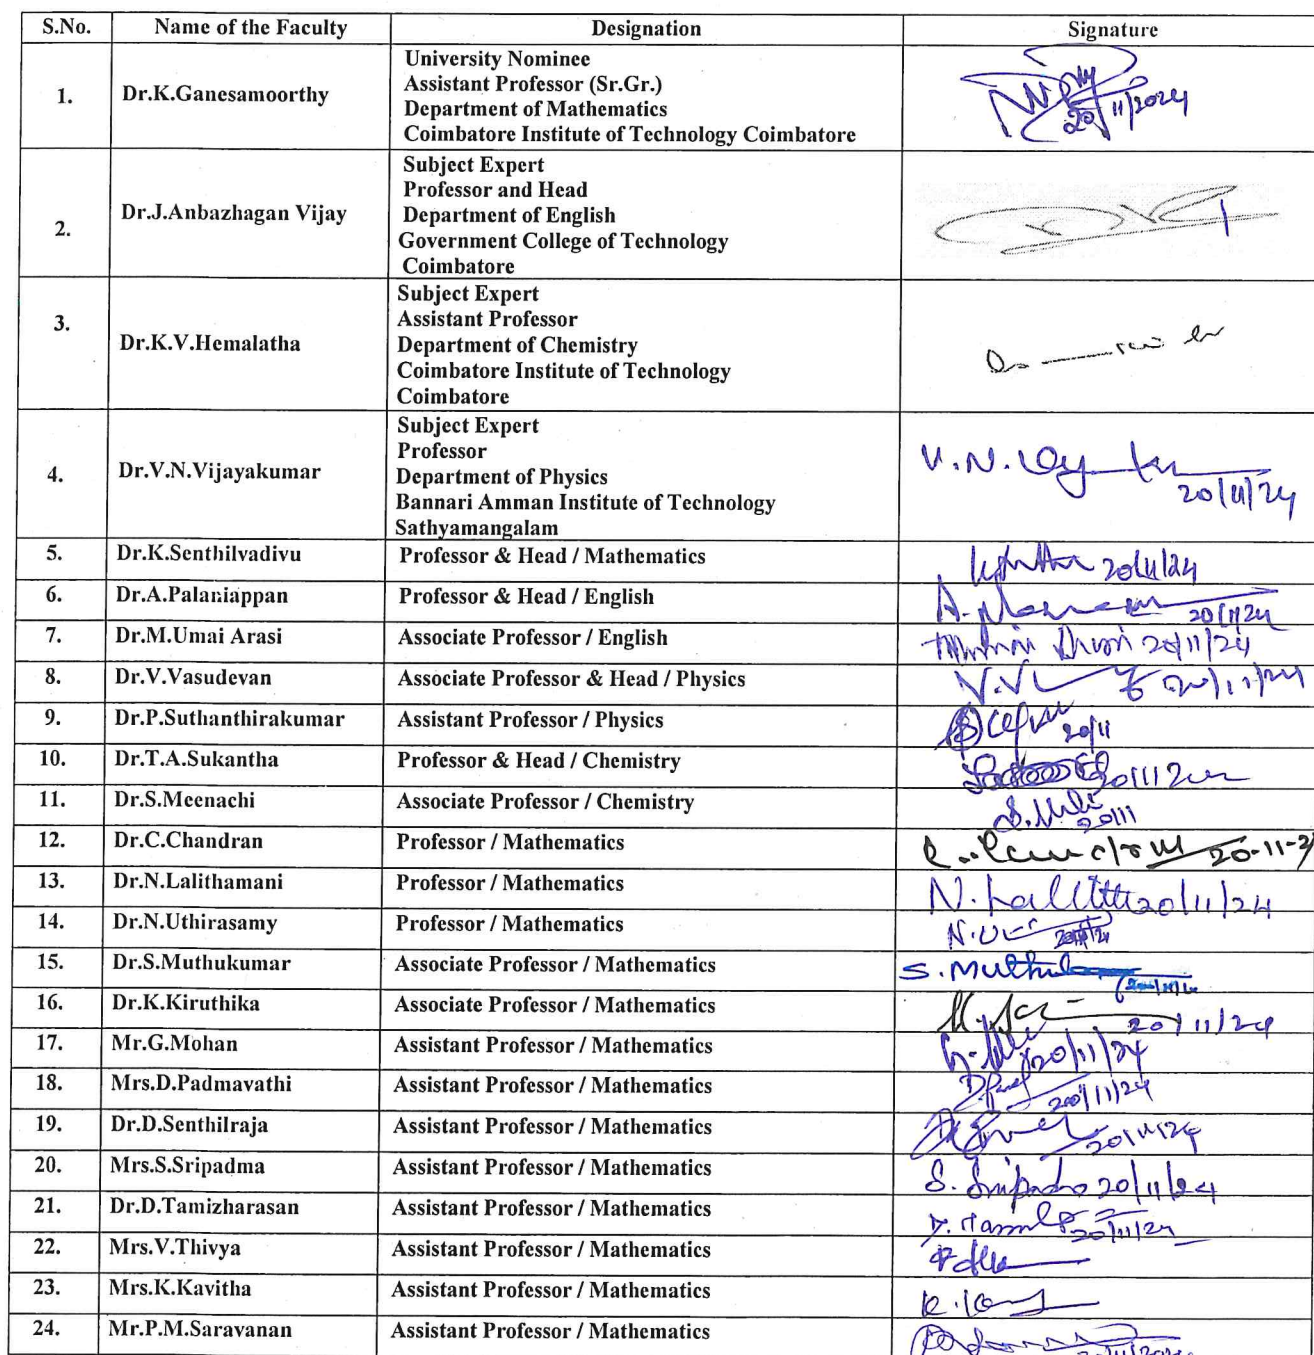 S.No. Name of the Faculty Designation Signature
1. Dr.K.Ganesamoorthy
University Nominee
Assistant Professor (Sr.Gr.)
Department of Mathematics
Coimbatore Institute of Technology Coimbatore
20/11/2024
2. Dr.J.Anbazhagan Vijay
Subject Expert
Professor and Head
Department of English
Government College of Technology
Coimbatore
3. Dr.K.V.Hemalatha
Subject Expert
Assistant Professor
Department of Chemistry
Coimbatore Institute of Technology
Coimbatore
4. Dr.V.N.Vijayakumar
Subject Expert
Professor
Department of Physics
Bannari Amman Institute of Technology
Sathyamangalam
V.N. 20/11/24
5. Dr.K.Senthilvadivu Professor & Head / Mathematics 20/11/24
6. Dr.A.Palaniappan Professor & Head / English 20/11/24
7. Dr.M.Umai Arasi Associate Professor / English 20/11/24
8. Dr.V.Vasudevan Associate Professor & Head / Physics 20/11/24
9. Dr.P.Suthanthirakumar Assistant Professor / Physics 20/11
10. Dr.T.A.Sukantha Professor & Head / Chemistry
11. Dr.S.Meenachi Associate Professor / Chemistry 20/11
12. Dr.C.Chandran Professor / Mathematics 20-11-2
13. Dr.N.Lalithamani Professor / Mathematics N. 20/11/24
14. Dr.N.Uthirasamy Professor / Mathematics
15. Dr.S.Muthukumar Associate Professor / Mathematics
16. Dr.K.Kiruthika Associate Professor / Mathematics 20/11/24
17. Mr.G.Mohan Assistant Professor / Mathematics 20/11/24
18. Mrs.D.Padmavathi Assistant Professor / Mathematics 20/11/24
19. Dr.D.Senthilraja Assistant Professor / Mathematics 20/11/24
20. Mrs.S.Sripadma Assistant Professor / Mathematics S. Sripadma 20/11/24
21. Dr.D.Tamizharasan Assistant Professor / Mathematics 20/11/24
22. Mrs.V.Thivya Assistant Professor / Mathematics
23. Mrs.K.Kavitha Assistant Professor / Mathematics
24. Mr.P.M.Saravanan Assistant Professor / Mathematics